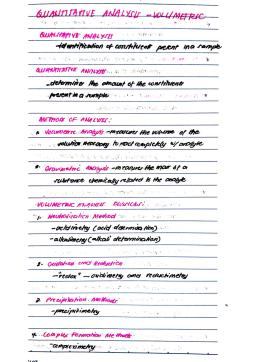 QUANTITATIVE ANALYSIS - VOLUMETRIC
QUALITATIVE ANALYSIS
-identification of constituent present in a sample
QUANTITATIVE ANALYSIS
-determine the amount of the constituent
present in a sample
METHODS OF ANALYSIS:
Volumetric Analysis -measures the volume of the
solution necessary to react completely w/ analyte
Gravimetric Analysis -measures the mass of a
substance chemically related to the analyte
VOLUMETRIC ANALYSIS
1. Neutralization Method
-acidimetry (acid determination)
-alkalimetry (alkali determination)
2. Oxidation and Reduction
-"redox" - oxidimetry and reductimetry
3. Precipitation Methods
-precipimetry
4. Complex Formation Methods